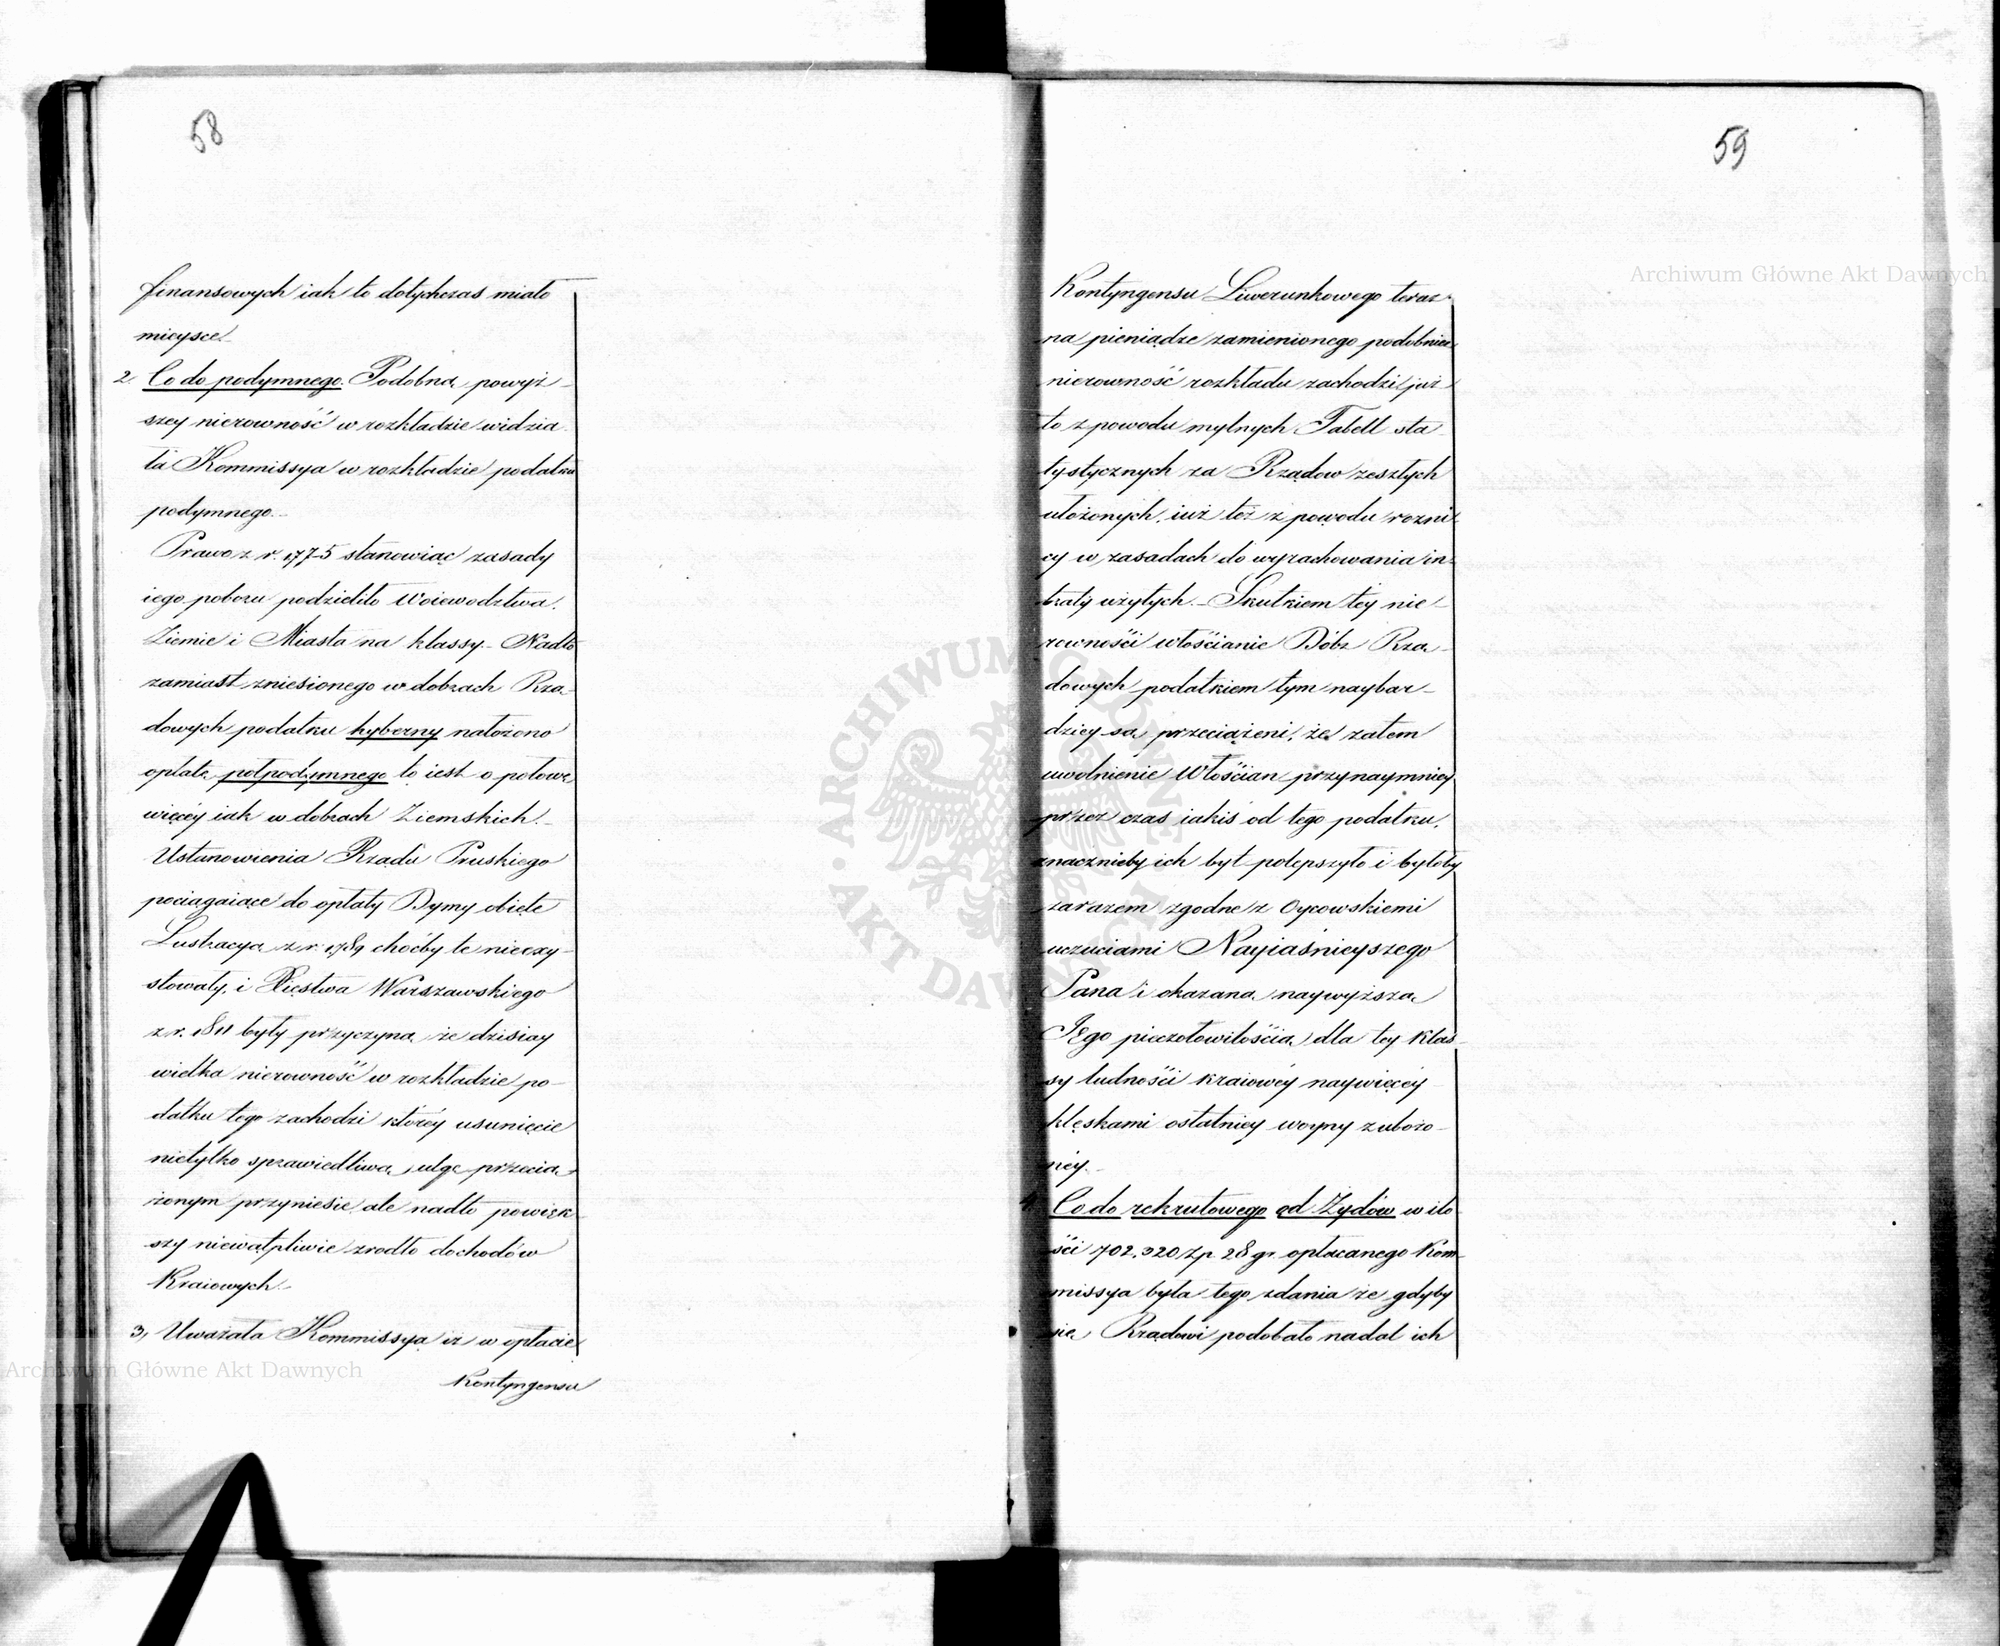 58
finansowych iak to dotychczas miało
mieysce.
2. Co do podymnego. Podobną powyż-
szey nierowność w rozkładzie widzia
ła Kommissya w rozkładzie podatku
podymnego.
Prawo z r. 1775 stanowiąc zasady
iego poboru podzieliło Woiewodztwa,
Ziemie i Miasta na klassy. Nadto
zamiast zniesionego w dobrach Rzą-
dowych podatku hyberny nałożono
opłatę połpodymnego to iest o połowę
więcéy iak w dobrach Ziemskich.
Ustanowienia Rządu Pruskiego
pociągaiące do opłaty Dymy obięte
Lustracyą z r. 1789 choćby te nieexy-
stowały, i Xięstwa Warszawskiego
z r. 1811 były przyczyną że dzisiay
wielka nierowność w rozkładzie po-
datku tego zachodzi któréy usunięcie
nietylko sprawiedliwą ulgę przecią-
żonym przyniesie ale nadto powięk-
szy niewątpliwie zrodło dochodów
Kraiowych.
3, Uważała Kommissya iż w opłacie
Kontyngensu
59
Kontyngensu Liwerunkowego teraz
na pieniądze zamienionego podobnież
nierowność rozkładu zachodzi już
to z powodu mylnych Tabell sta-
tystycznych za Rządow zeszłych
ułożonych, iuż też z powodu rożni-
cy w zasadach do wyrachowania in-
traty użytych. Skutkiem tey nie-
rownośći włośćianie Dóbr Rzą-
dowych podatkiem tym naybar-
dziey są przeciążeni, że zatem
uwolnienie Włośćian przynaymniey
przez czas iakiś od tego podatku,
znacznieby ich byt polepszyło i byłoby
zarazem zgodne z Oycowskiemi
uczuciami Nayiaśnieyszego
Pana i okazaną naywyższą
Jego pieczołowitośćią dla tey klas-
sy ludnośći kraiowéy naywięcéy
klęskami ostatniey woyny zubożo-
néy.
4. Co do rekrutowego od Żydów w ilo
śći 702,320 Zp. 28 gr. opłacanego Kom-
missya była tego zdania że gdyby
się Rządowi podobało nadal ich
Archiwum Główne Akt Dawnych
Archiwum Główne Akt Dawnych
ARCHIWUM GŁÓWNE · AKT DAWNYCH